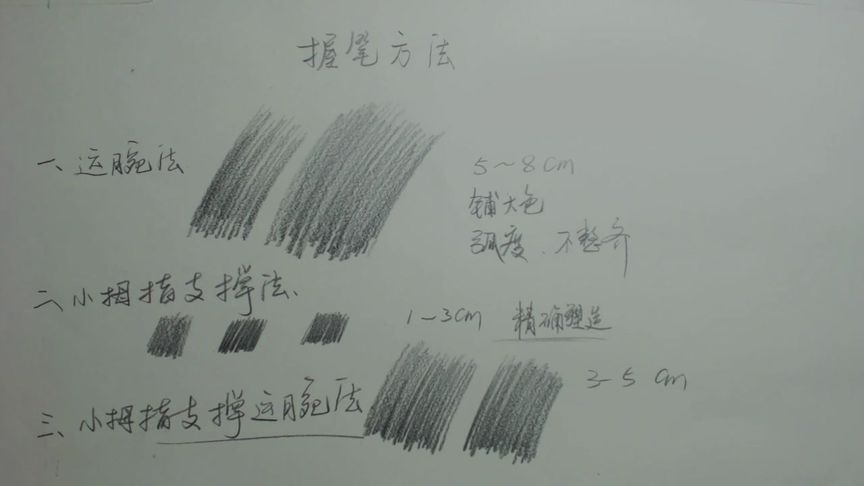 握笔方法
一、运腕法
5~8cm
铺大色
弧度、不整齐
二、小拇指支撑法、
1~3cm 精确塑造
3-5 cm
三、小拇指支撑运腕法